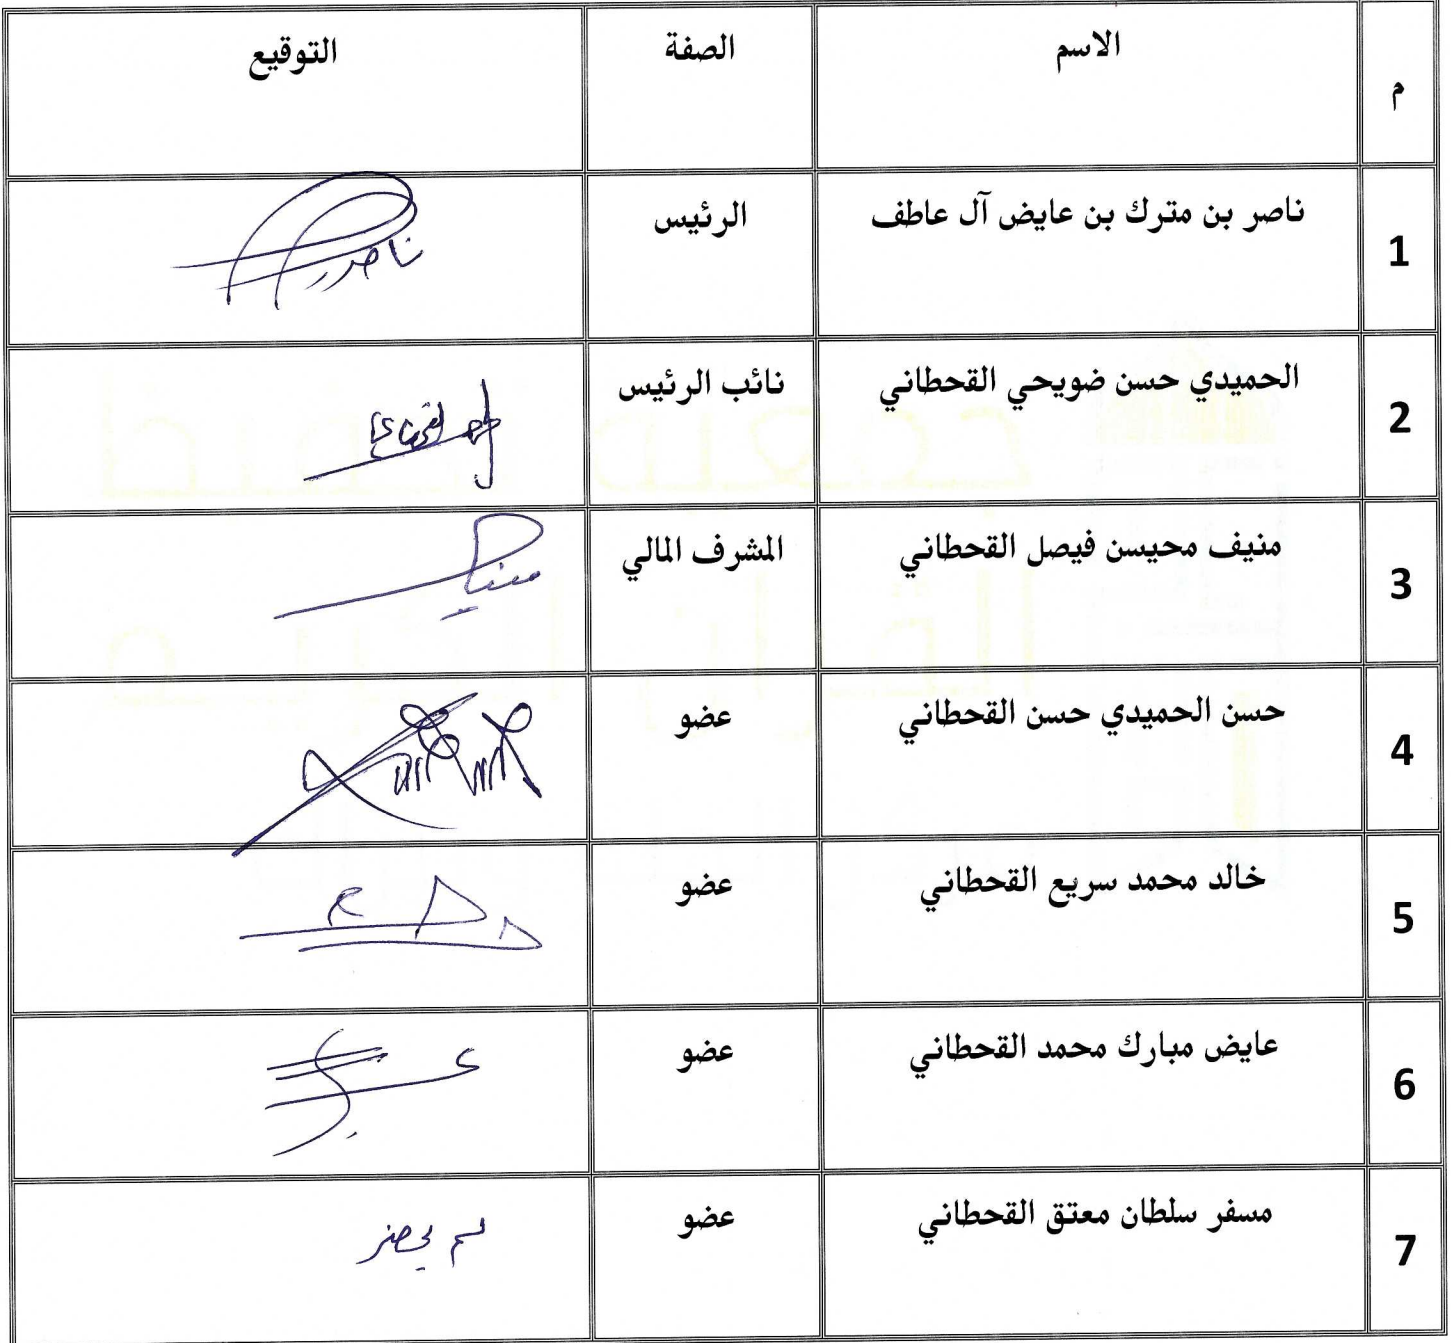 م الاسم الصفة التوقيع
1 ناصر بن مترك بن عايض آل عاطف الرئيس ناصر
2 الحميدي حسن ضويحي القحطاني نائب الرئيس
3 منيف محيسن فيصل القحطاني المشرف المالي منيف
4 حسن الحميدي حسن القحطاني عضو
5 خالد محمد سريع القحطاني عضو
6 عايض مبارك محمد القحطاني عضو
7 مسفر سلطان معتق القحطاني عضو لم يحضر